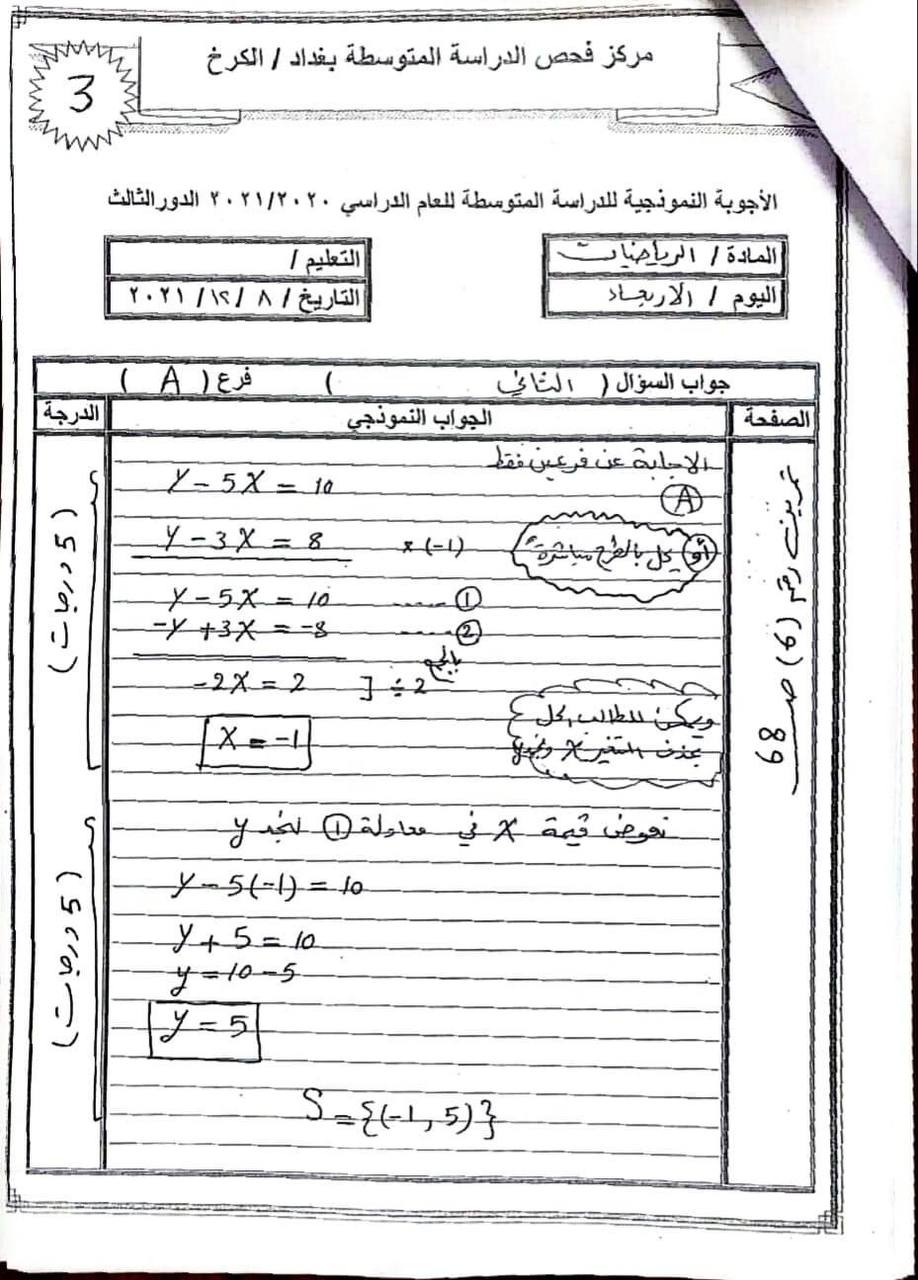 مركز فحص الدراسة المتوسطة بغداد / الكرخ
3
الأجوبة النموذجية للدراسة المتوسطة للعام الدراسي ٢٠٢١/٢٠٢٠ الدور الثالث
المادة / الرياضيات
التعليم /
اليوم / الاربعاء
التاريخ / ٨ / ١٢ / ٢٠٢١
جواب السؤال ( الثاني ) فرع ( A )
الصفحة
الجواب النموذجي
الدرجة
تمرين رقم (6) صـ 68
الاجابة عن فرعين فقط
y - 5x = 10
A
y - 3x = 8 × (-1)
أو يحل بالطرح مباشرة
y - 5x = 10 ...... ①
-y + 3x = -8 ...... ②
بالجمع
-2x = 2 ] ÷ 2
ويمكن للطالب الحل
بحذف المتغير x ونجد y
x = -1
(5 درجات)
نعوض قيمة x في معادلة ① لنجد y
y - 5(-1) = 10
y + 5 = 10
y = 10 - 5
y = 5
(5 درجات)
S = {(-1, 5)}